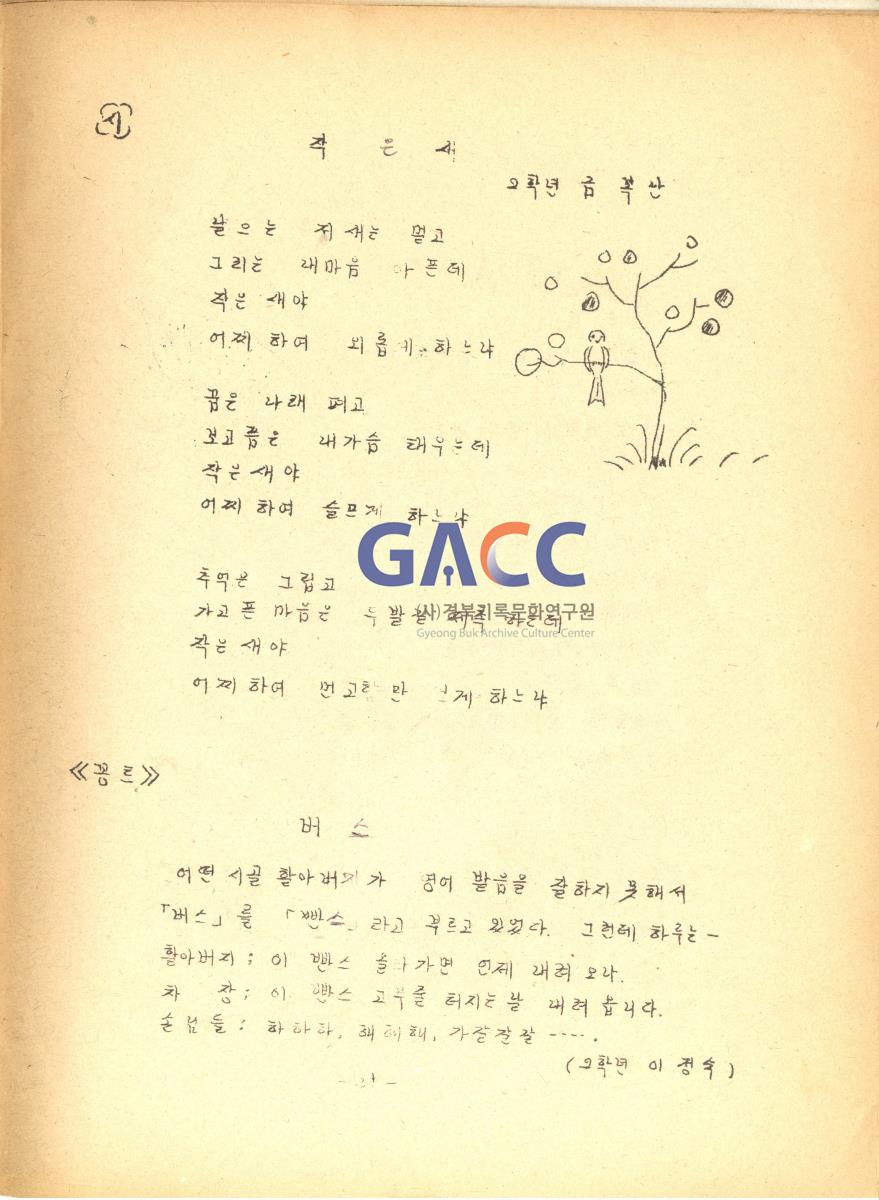 시
작은 새
2학년 금 복 산
날으는 저 새는 멀고
그리는 내마음 아픈데
작은 새야
어찌 하여 외롭게 하느냐
꿈은 나래 펴고
보고픔은 내가슴 태우는데
작은 새야
어찌 하여 슬프게 하느냐
GACC
(사)경북기록문화연구원
Gyeong Buk Archive Culture Center
추억은 그립고
가고픈 마음은 두발을 재촉 하는데
작은 새야
어찌 하여 먼고향만 하느냐
≪꽁트≫
버 스
어떤 시골 할아버지가 영어 발음을 잘하지 못해서
「버스」를 「빤스」라고 부르고 있었다. 그런데 하루는-
할아버지 ; 이 빤스 올라가면 언제 내려 오나.
차 장 ; 이 빤스 고무줄 터지는날 내려 옵니다.
손님들 : 하하하, 해해해, 가잘잘잘 ----.
(2학년 이 정숙)